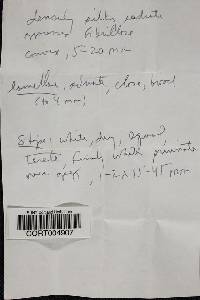 silky
appressed fibrillose
convex, 5-20 mm
Lamellae, adnate, close, broad
(to 4 mm)
Stipe: white, dry, equal
Terete, finely white pruinate
near apex, 1-2 x 15-45 mm
CORT004907